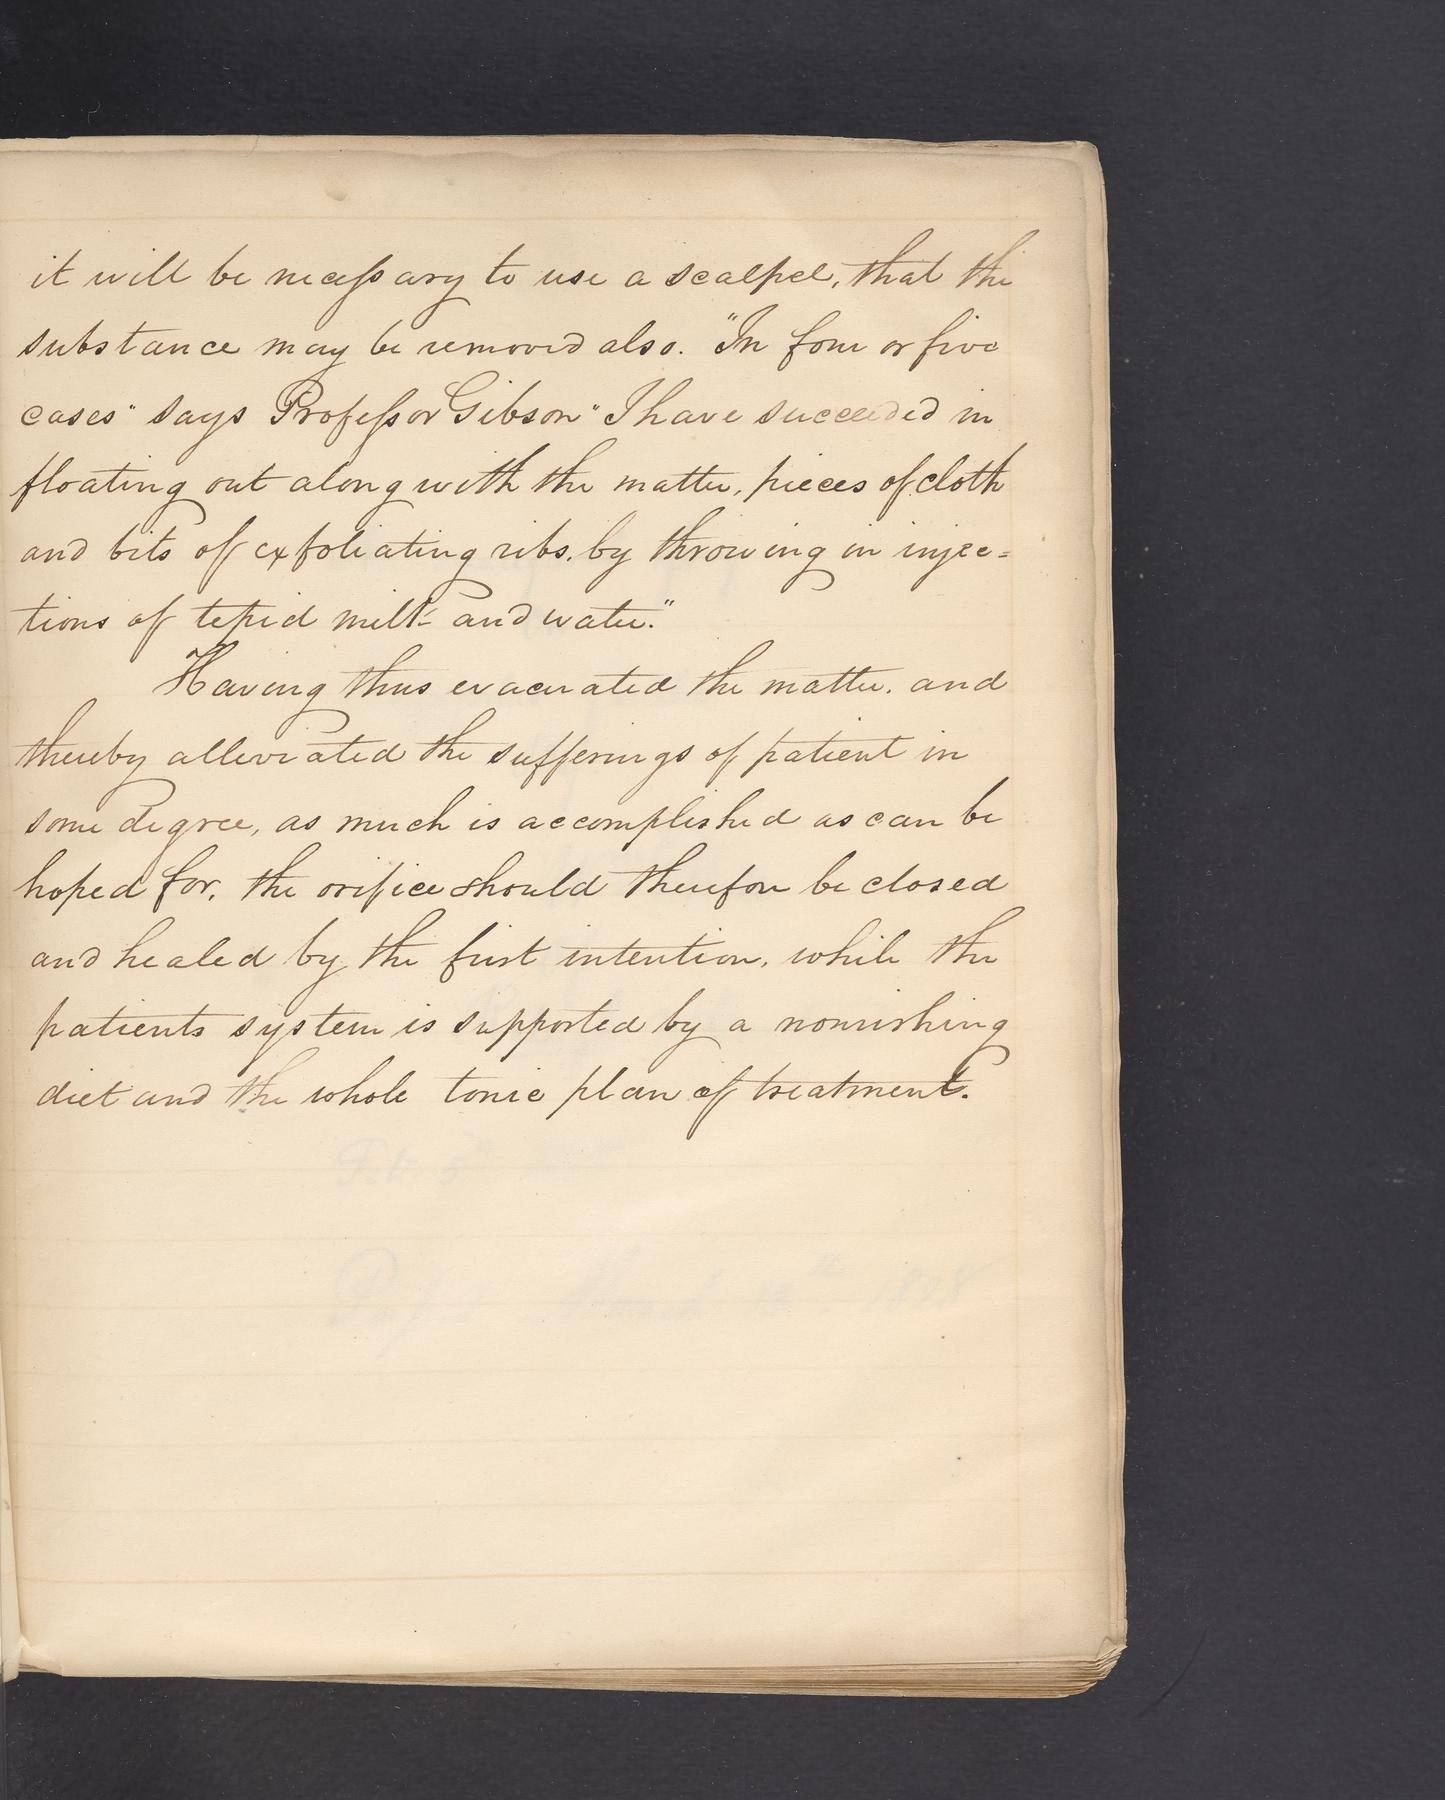 it will be necessary to use a scalpel, that the
substance may be removed also. "In four or five
cases" says Professor Gibson "I have succeeded in
floating out along with the matter, pieces of cloth
and bits of exfoliating ribs, by throwing in injec=
tions of tepid milk and water."
Having thus evacuated the matter, and
thereby alleviated the sufferings of patient in
some degree, as much is accomplished as can be
hoped for, the orifice should therefore be closed
and healed by the first intention, while the
patients system is supported by a nourishing
diet and the whole tonic plan of treatment.